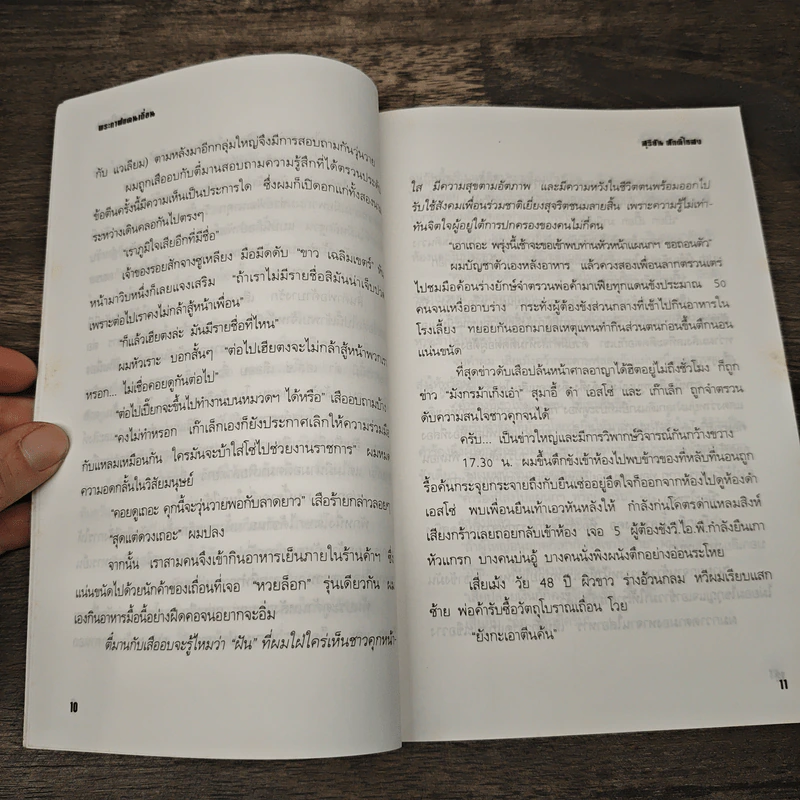 พระกาฬตนเถื่อน
กับ แวเลียม) ตามหลังมาอีกกลุ่มใหญ่จึงมีการสอบถามกันวุ่นวาย
ผมถูกเสืออบกับตี่มานสอบถามความรู้สึกที่ได้ตรวนประดับ
ข้อตีนครั้งนี้มีความเห็นเป็นประการใด ซึ่งผมก็เปิดอกแก่ทั้งสองคน
ระหว่างเดินคลอกันไปตรงๆ
"เราภูมิใจเสียอีกที่มีชื่อ"
เจ้าของรอยสักจางซูเหลียง มือมีดดับ "ขาว เฉลิมเขตร์"
หน้ามาวิบหนึ่งก็เลยแจงเสริม "ถ้าเราไม่มีรายชื่อสิมันน่าเจ็บปวด
เพราะต่อไปเราคงไม่กล้าสู้หน้าเพื่อน"
"ก็แล้วเฮียตงล่ะ มันมีรายชื่อที่ไหน"
ผมหัวเราะ บอกสั้นๆ "ต่อไปเฮียตงจะไม่กล้าสู้หน้าพวกเรา
หรอก... ไม่เชื่อคอยดูกันต่อไป"
"ต่อไปเปี๊ยกจะขึ้นไปทำงานบนหมวดฯ ได้หรือ" เสืออบถามบ้าง
"คงไม่ทำหรอก เก๊าเล็กเองก็ยังประกาศเลิกให้ความร่วมมือ
กับแหลมเหมือนกัน ใครมันจะบ้าใส่โซ่ไปช่วยงานราชการ" ผมหมด
ความอดกลั้นในวิสัยมนุษย์
"คอยดูเถอะ คุกนี้จะวุ่นวายพอกับลาดยาว" เสือร้ายกล่าวลอยๆ
"สุดแต่ดวงเถอะ" ผมปลง
จากนั้น เราสามคนจึงเข้ากินอาหารเย็นภายในร้านค้าฯ ซึ่ง
แน่นขนัดไปด้วยนักค้าของเถื่อนที่เจอ "หวยล็อก" รุ่นเดียวกัน ผม
เองกินอาหารมื้อนี้อย่างฝืดคอจนอยากจะอิ่ม
ตี่มานกับเสืออบจะรู้ไหมว่า "ฝัน" ที่ผมใฝ่ใคร่เห็นชาวคุกหน้า
10
สุริยัน ศักดิ์ไธสง
ใส มีความสุขตามอัตภาพ และมีความหวังในชีวิตตนพร้อมออกไป
รับใช้สังคมเพื่อนร่วมชาติเยี่ยงสุจริตชนมลายสิ้น เพราะความรู้ไม่เท่า-
ทันจิตใจผู้อยู่ใต้การปกครองของคนไม่กี่คน
"เอาเถอะ พรุ่งนี้เช้าจะขอเข้าพบท่านหัวหน้าแผนกฯ ขอถอนตัว"
ผมบัญชาตัวเองหลังอาหาร แล้วควงสองเพื่อนลากตรวนเตร่
ไปชมมือค้อนร่างยักษ์จำตรวนพ่อค้ามาเฟียทุกแดนขังประมาณ 50
คนจนเหงื่ออาบร่าง กระทั่งผู้ต้องขังส่วนกลางที่เข้าไปกินอาหารใน
โรงเลี้ยง ทยอยกันออกมายลเหตุแทนทำกินส่วนตนก่อนขึ้นตึกนอน
แน่นขนัด
ที่สุดข่าวดับเสือปล้นหน้าศาลอาญาได้ฮิตอยู่ไม่ถึงชั่วโมง ก็ถูก
ข่าว "มังกรม้าเก็งเอ๋า" สุมาอี้ ดำ เอสโซ่ และ เก๊าเล็ก ถูกจำตรวน
ดับความสนใจชาวคุกจนได้
ครับ... เป็นข่าวใหญ่และมีการวิพากษ์วิจารณ์กันกว้างขวาง
17.30 น. ผมขึ้นตึกขังเข้าห้องไปพบข้าวของที่หลับที่นอนถูก
รื้อค้นกระจุยกระจายถึงกับยืนเซ่ออยู่อึดใจก็ออกจากห้องไปดูห้องดำ
เอสโซ่ พบเพื่อนยืนเท้าเอวหันหลังให้ กำลังก่นโคตรด่าแหลมสิงห์
เสียงกร้าวเลยถอยกลับเข้าห้อง เจอ 5 ผู้ต้องขังวี.ไอ.พี.กำลังยืนเกา
หัวแแกรก บางคนบ่นอู้ บางคนนั่งพิงผนังตึกอย่างอ่อนระโหย
เสี่ยเม้ง วัย 48 ปี ผิวขาว ร่างอ้วนกลม หวีผมเรียบแสก
ซ้าย พ่อค้ารับซื้อวัตถุโบราณเถื่อน โวย
"ยังกะเอาตีนค้น"
11